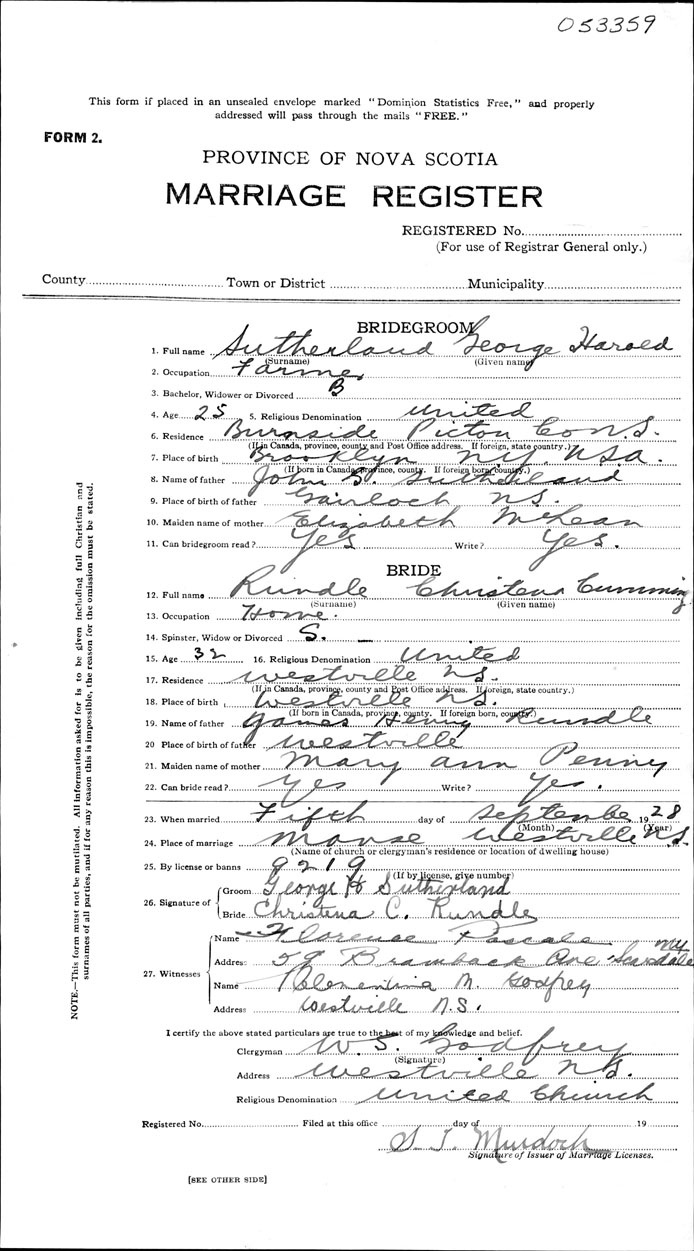 053359
This form if placed in an unsealed envelope marked "Dominion Statistics Free," and properly
addressed will pass through the mails "FREE."
FORM 2.
PROVINCE OF NOVA SCOTIA
MARRIAGE REGISTER
REGISTERED No.
(For use of Registrar General only.)
County Town or District Municipality
BRIDEGROOM
1. Full name Sutherland George Harold
(Surname) (Given name)
2. Occupation Farmer
3. Bachelor, Widower or Divorced B
4. Age 25 5. Religious Denomination United
6. Residence Burnside Pictou Co N.S.
(If in Canada, province, county and Post Office address. If foreign, state country.)
7. Place of birth Brooklyn NY. USA.
(If born in Canada, province, county. If foreign born, country.)
8. Name of father John S. Sutherland
9. Place of birth of father Gairloch NS.
10. Maiden name of mother Elizabeth McLean
11. Can bridegroom read? Yes Write? Yes.
BRIDE
12. Full name Rundle Christena Cumming
(Surname) (Given name)
13. Occupation Home.
14. Spinster, Widow or Divorced S.
15. Age 32 16. Religious Denomination United
17. Residence Westville N.S.
(If in Canada, province, county and Post Office address. If foreign, state country.)
18. Place of birth Westville N.S.
(If born in Canada, province, county. If foreign born, country.)
19. Name of father James Henry Rundle
20 Place of birth of father Westville
21. Maiden name of mother Mary Ann Penny
22. Can bride read? Yes Write? Yes.
23. When married Fifth day of September 1928
(Month) (Year)
24. Place of marriage Manse Westville N.S.
(Name of church or clergyman's residence or location of dwelling house)
25. By license or banns 9219
(If by license, give number)
26. Signature of Groom George H Sutherland
Bride Christena C. Rundle
27. Witnesses
Name Florence Pascale
Address 59 Ave Scarsdale NY
Name Clementina M. Godfrey
Address Westville N.S.
I certify the above stated particulars are true to the best of my knowledge and belief.
Clergyman W. S. Godfrey
(Signature)
Address Westville N.S.
Religious Denomination United Church
Registered No. Filed at this office day of 19
Murdoch
Signature of Issuer of Marriage Licenses.
[SEE OTHER SIDE]
NOTE.—This form must not be mutilated. All information asked for is to be given including full Christian and
surnames of all parties, and if for any reason this is impossible, the reason for the omission must be stated.